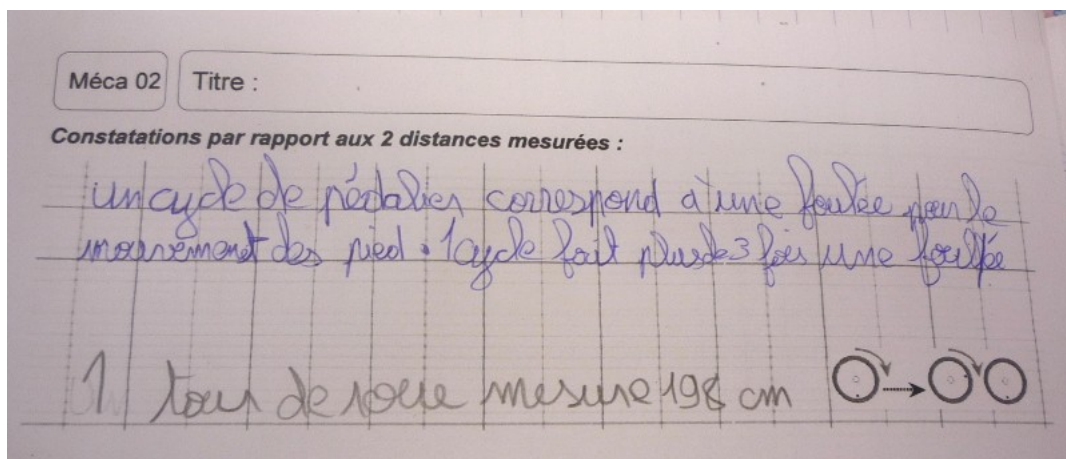 Méca 02
Titre :
Constatations par rapport aux 2 distances mesurées :
un cycle de pédalier correspond à une foulée pour le
mouvement des pied. 1 cycle fait plus de 3 fois une foulée
1 tour de roue mesure 198 cm